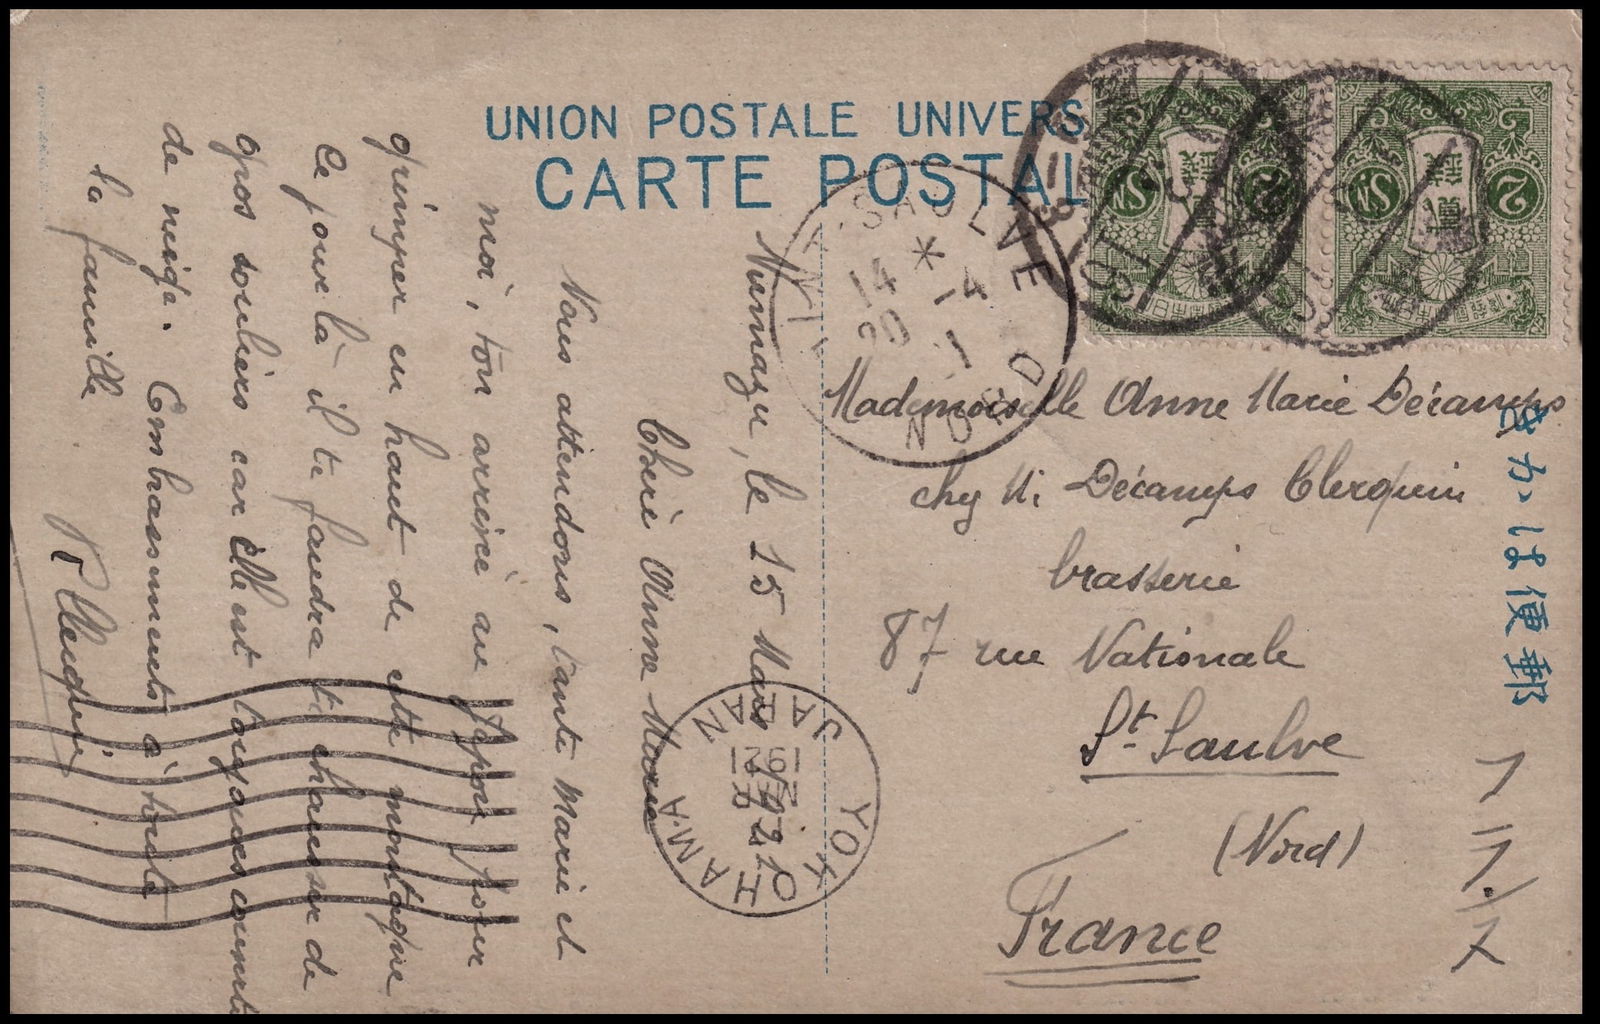 UNION POSTALE UNIVERS
CARTE POSTAL
Numazu, le 15 Mars 1921
Chère Anne Marie
Nous attendons, tante Marie et
moi, ton arrivée au Japon pour
grimper en haut de cette montagne
Ce jour là il te faudra te chausser de
gros souliers car elle est toujours couverte
de neige. Embrassements à toute
la famille
Mademoiselle Anne Marie Décamps
chez M. Décamps Clerquin
brasserie
87 rue Nationale
St. Saulve
(Nord)
France
きかは便郵
SAULVE
NORD
14
YOKOHAMA
JAPAN
1921
2 Sn
2 Sn